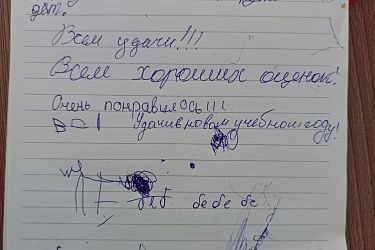 дет.
Всем удачи!!!
Всем хороших оценок!
Очень понравилось!!!
Удачи в новом учебном году!
бе б. бе бе бе